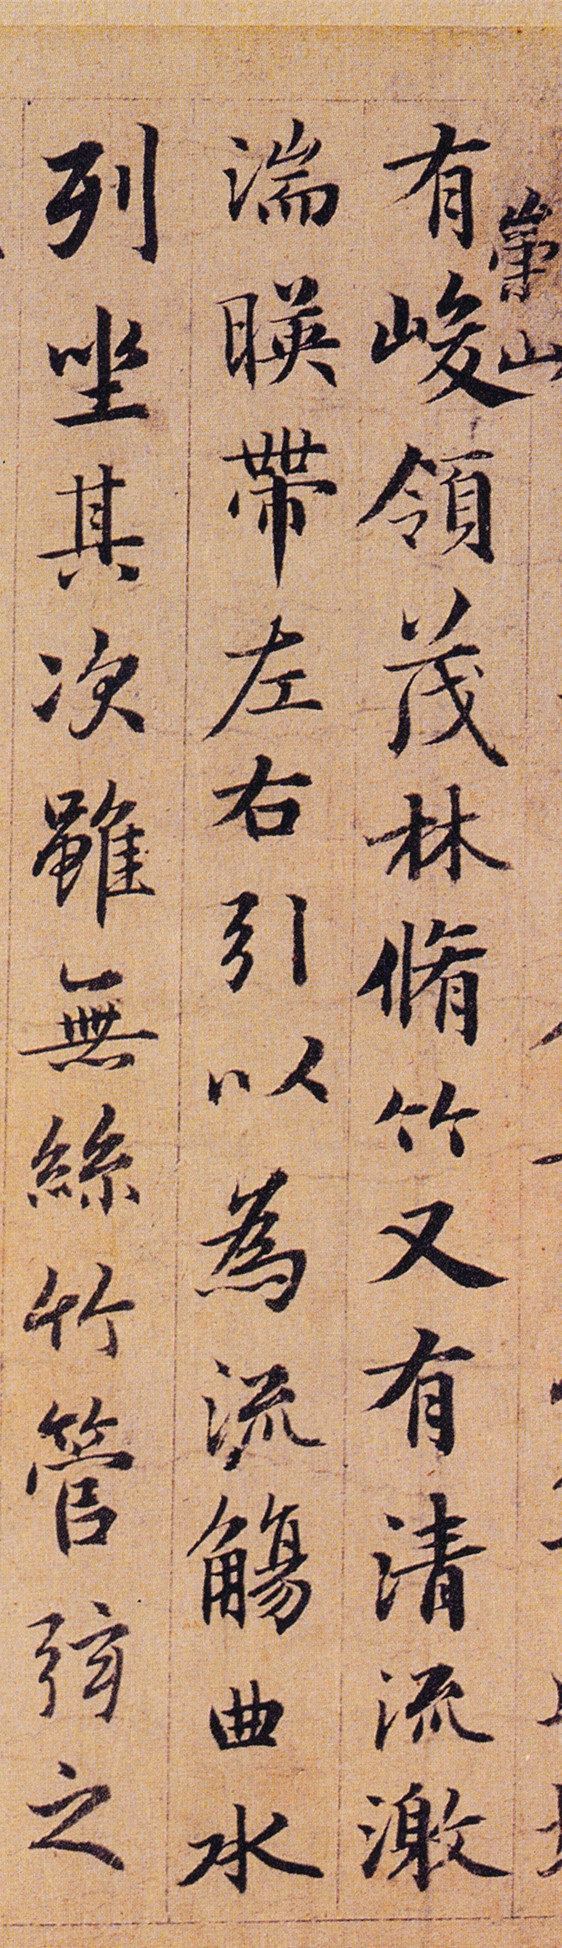 崇山
有峻領茂林脩竹又有清流激
湍暎帶左右引以為流觴曲水
列坐其次雖無絲竹管弦之